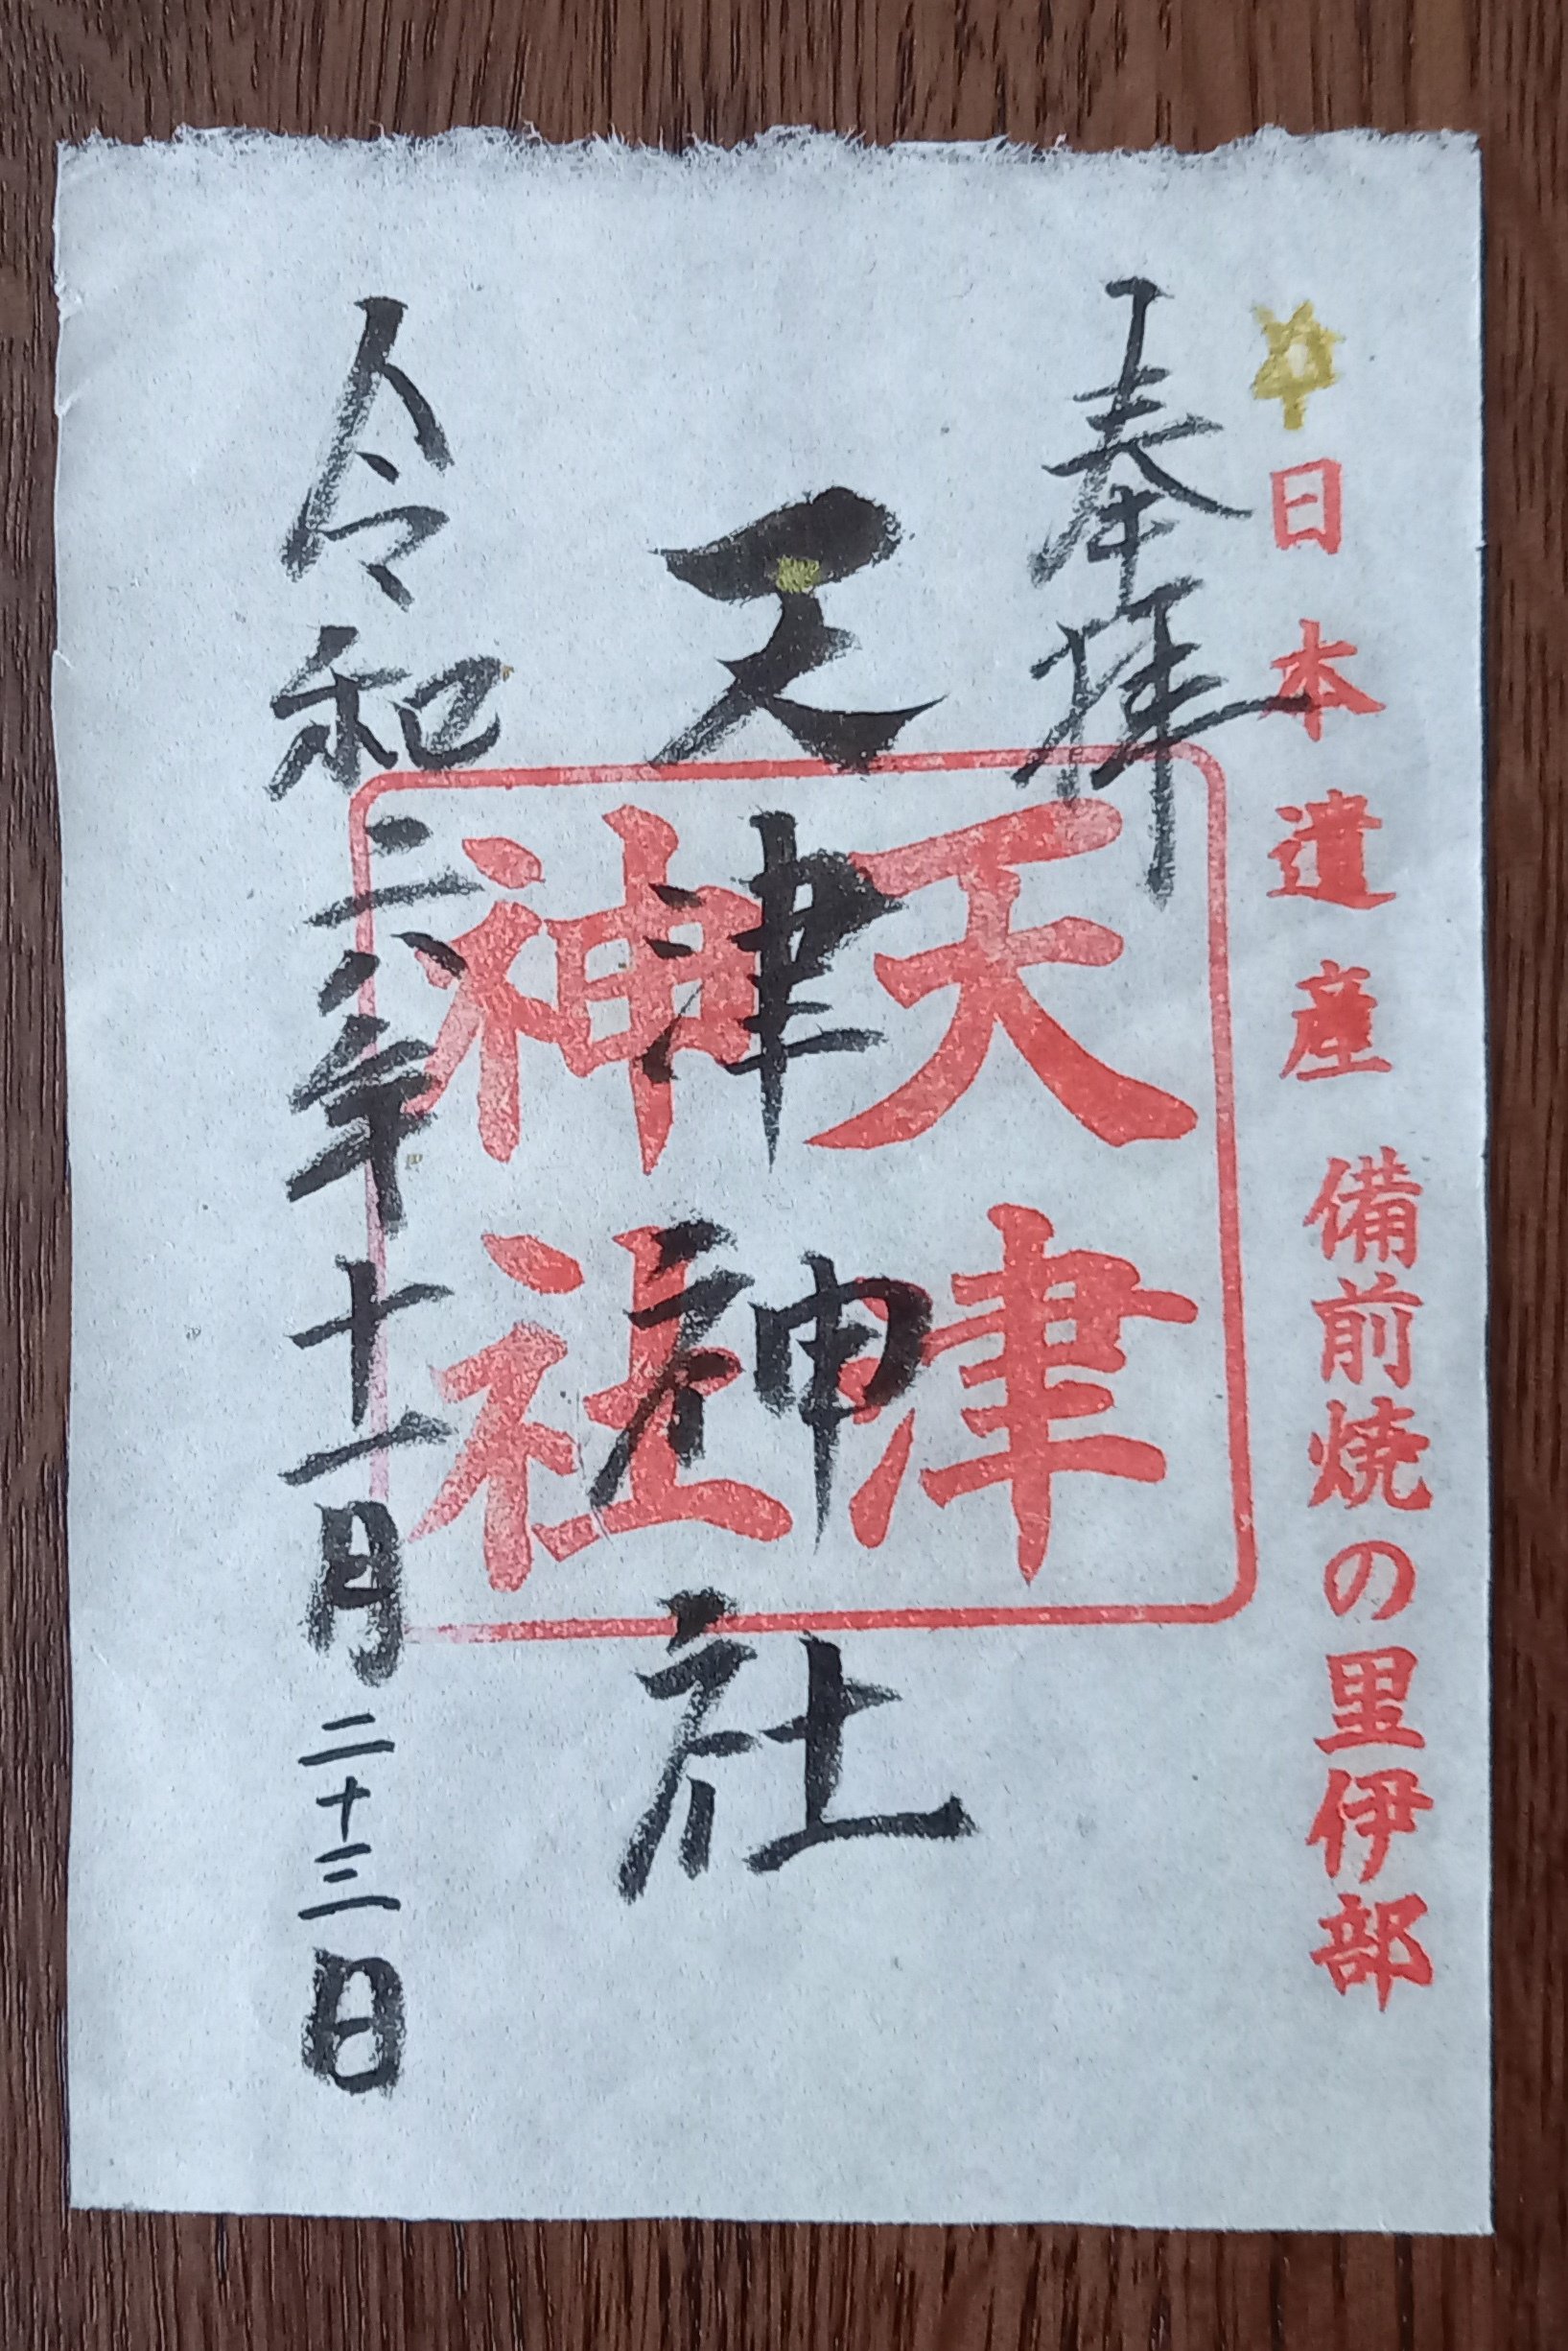 日本遺産 備前焼の里伊部
奉拝
天津神社
天津
神社
令和六年十一月二十三日